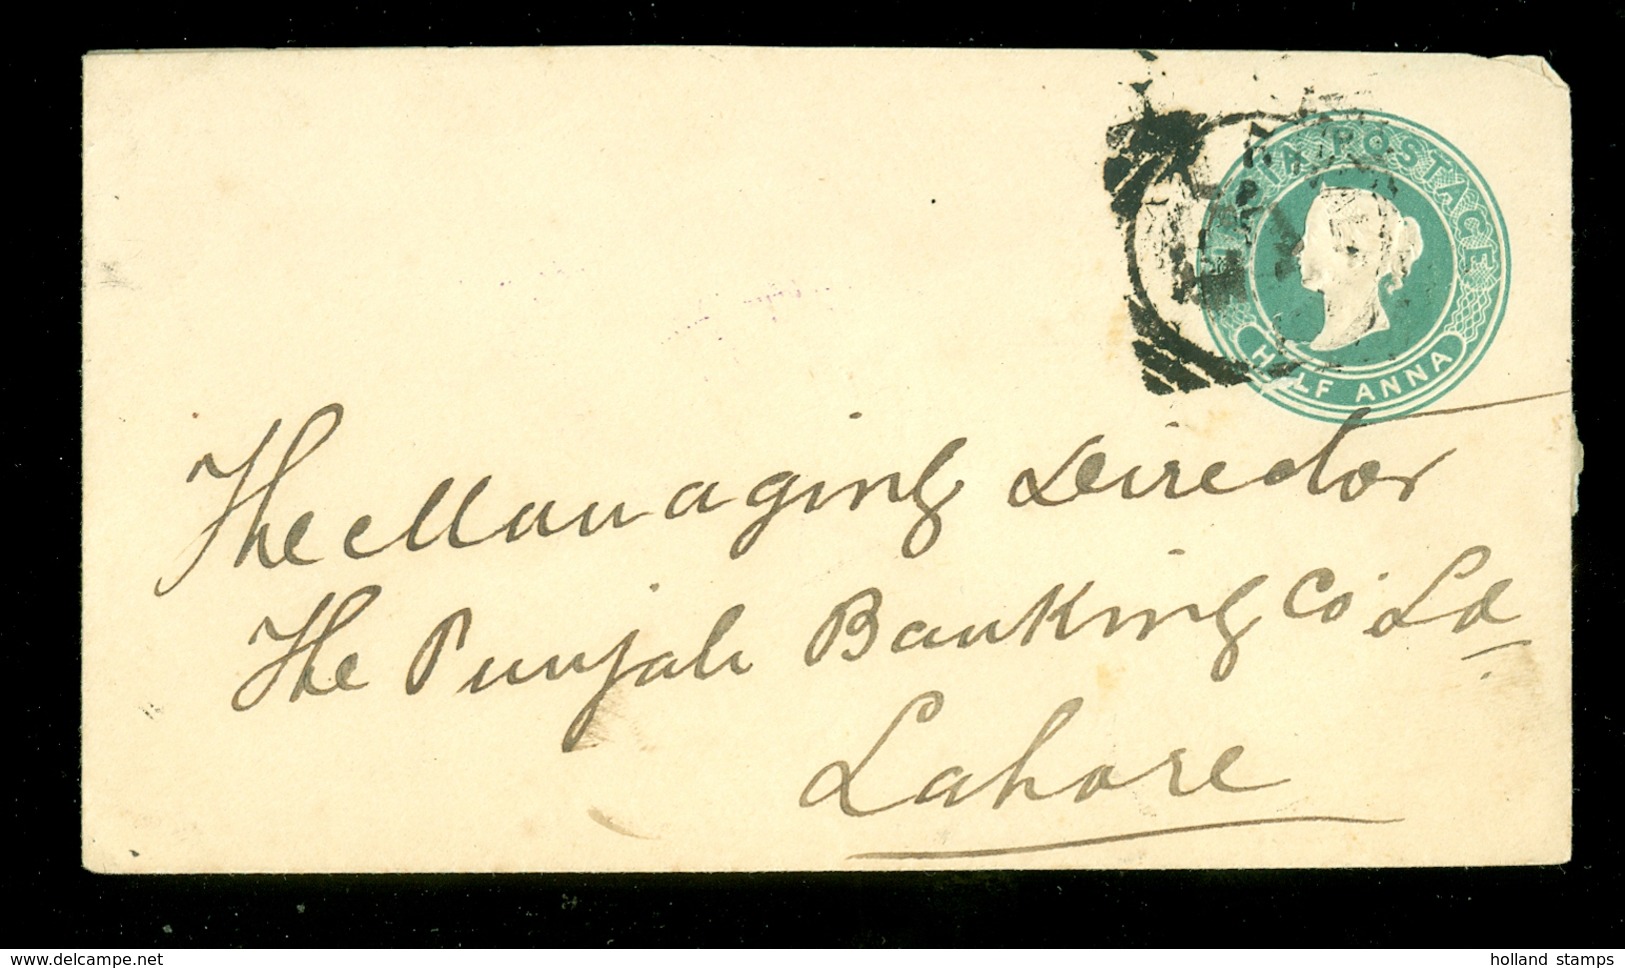 INDIA POSTAGE
HALF ANNA
The Managing Director
The Punjab Banking Co Ld
Lahore
www.delcampe.net
holland stamps